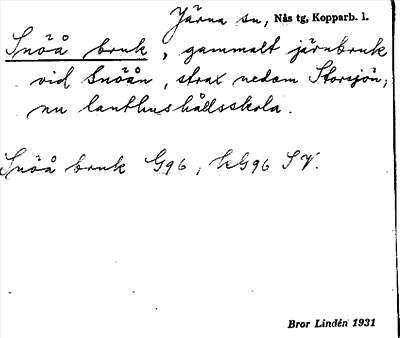 Järna sn, Nås tg, Kopparb. l.
Snöå bruk, gammalt järnbruk
vid Snöån, strax nedom Storsjön;
nu lanthushållsskola.
Snöå bruk G96, kG96 SV.
Bror Lindén 1931